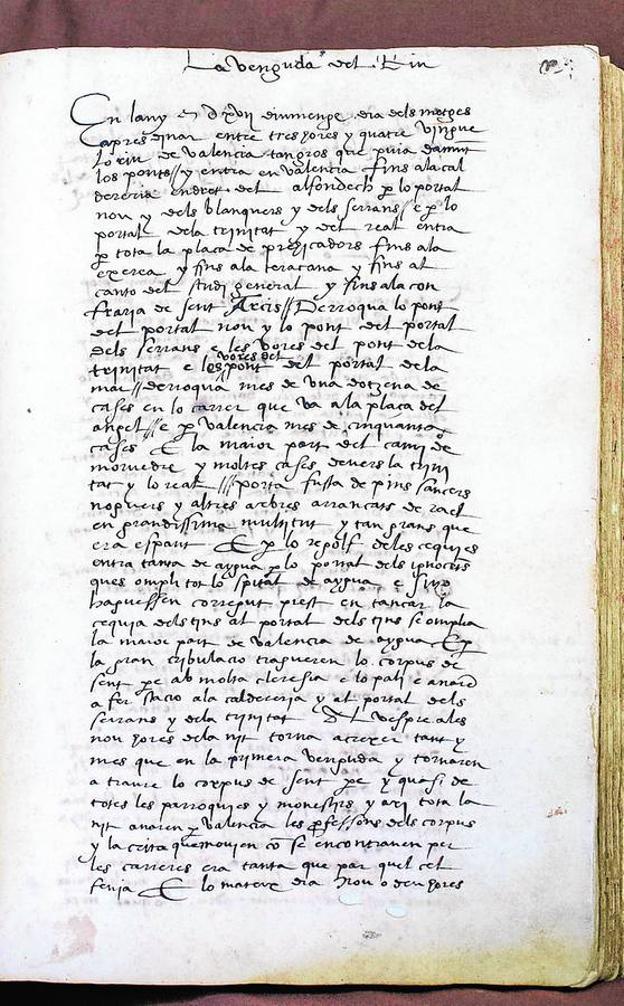 La venguda del Riu
En lany M dxvii diumenge dia dels metges
apres dinar entre tres hores y quatre vingue
lo riu de valencia tan gros que puia damunt
los ponts // y entra en valencia fins ala cal
dereria endret del alfondech p lo portal
nou y dels blanquers y dels serrans // e p lo
portal dela trinitat y del real entra
p tota la plaça de predicadors fins ala
exerea y fins ala teraçana y fins al
canto del studi general y fins ala con
fraria de sent Arcis // Derroqua lo pont
del portal nou y lo pont del portal
dels serrans e les vores del pont dela
trinitat e les vores del pont del portal dela
mar // derroqua mes de una dotzena de
cases en lo carrer que va ala plaça del
angel // e p valencia mes de cinquanta
cases E la maior part del cami de
morvedre y moltes cases devers la trini
tat y lo real /// porta fusta de pins sancers
noguers y altres arbres arrancats de rael
en grandissima multitut y tan grans que
era espant E p lo regolf deles cequies
entra tanta de aygua p lo portal dels ignocets
ques ompli tot lo spital de aygua e sino
haguessen corregut prest en tancar la
cequia dels tins al portal dels tins se omplia
la maior part de valencia de aygua E p
la gran tribulacio tragueren lo corpus de
sent pe ab molta cleresia e lo pali e anarē
a fer stacio ala caldereria y al portal dels
serrans y dela trinitat Al vespre ales
nou hores dela nit torna acrexer tant y
mes que en la primera venguda y tornaren
a traure lo corpus de sent pe y quasi de
totes les parroquies y monestirs y axi tota la
nit anaren p valencia les pfessons dels corpus
y la crita que movien cō se encontraven per
les carreres era tanta que par quel cel
fenia E lo mateix dia nou o deu hores